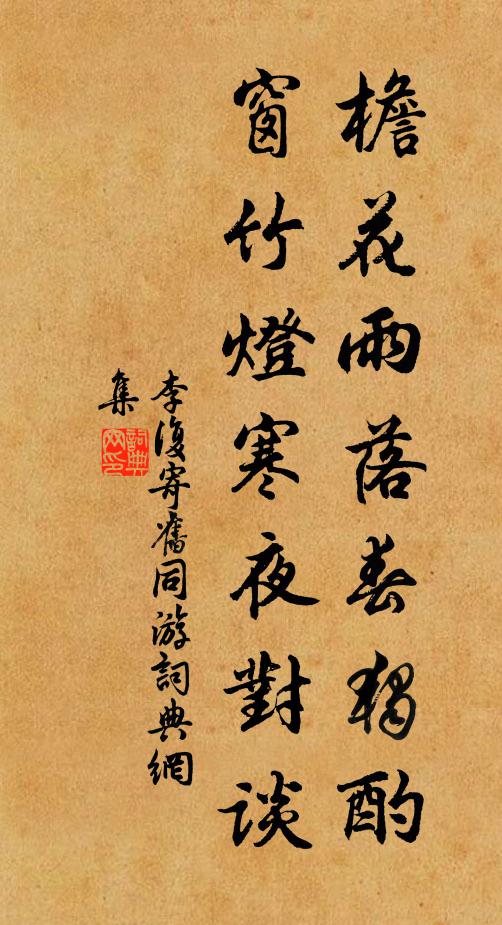 檐花雨落春獨酌
窗竹燈寒夜對談
李復寄舊同游詞典網
集
詞典
网印